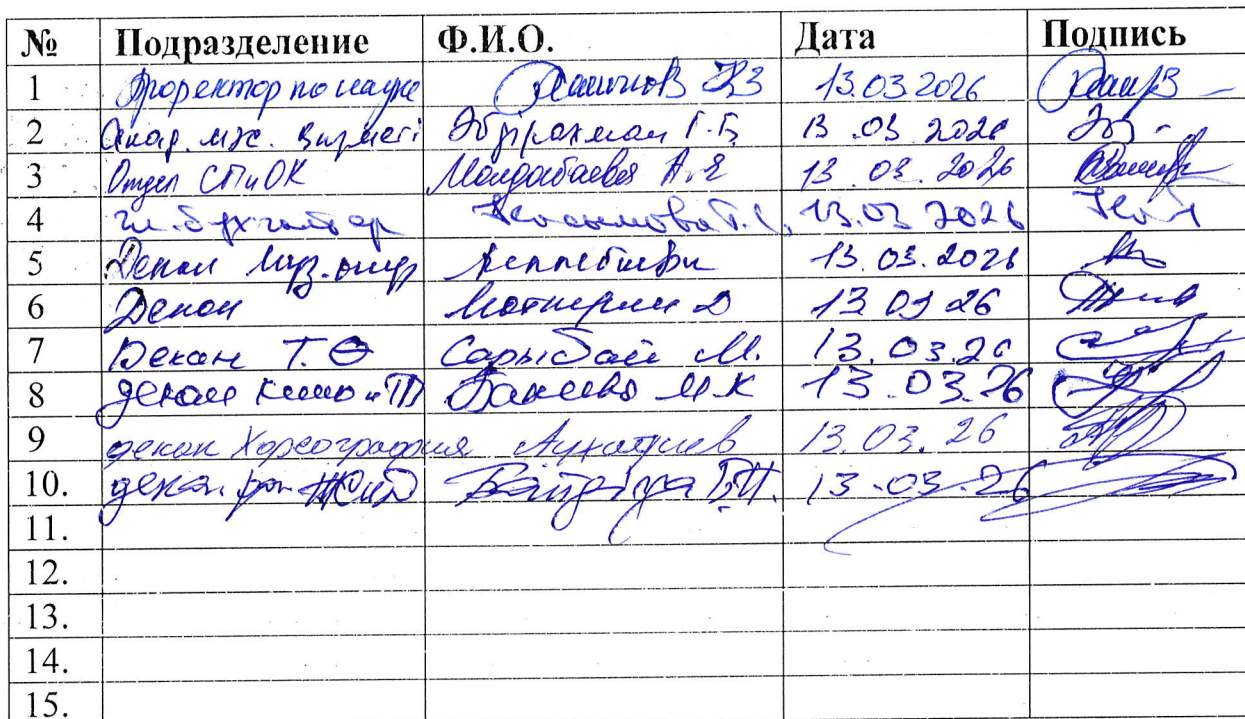 № Подразделение Ф.И.О. Дата Подпись
1 Проректор по науке 13.03 2026
2 Акад. мәс. қызметі Әбдірахман Г.Б 13.03 2026
3 Отдел СПиОК Молдабаева А.Е 13.03.2026
4 гл. бухгалтер Касымова Г. 13.03 2026
5 Декан 13.03.2026
6 Декан 13 03 26
7 Декан Т.Ө Сарыбай М. 13.03.26
8 декан кино и ТВ Бакеева М.К 13.03.26
9 декан Хореография 13.03.26
10. декан 13.03.26
11.
12.
13.
14.
15.